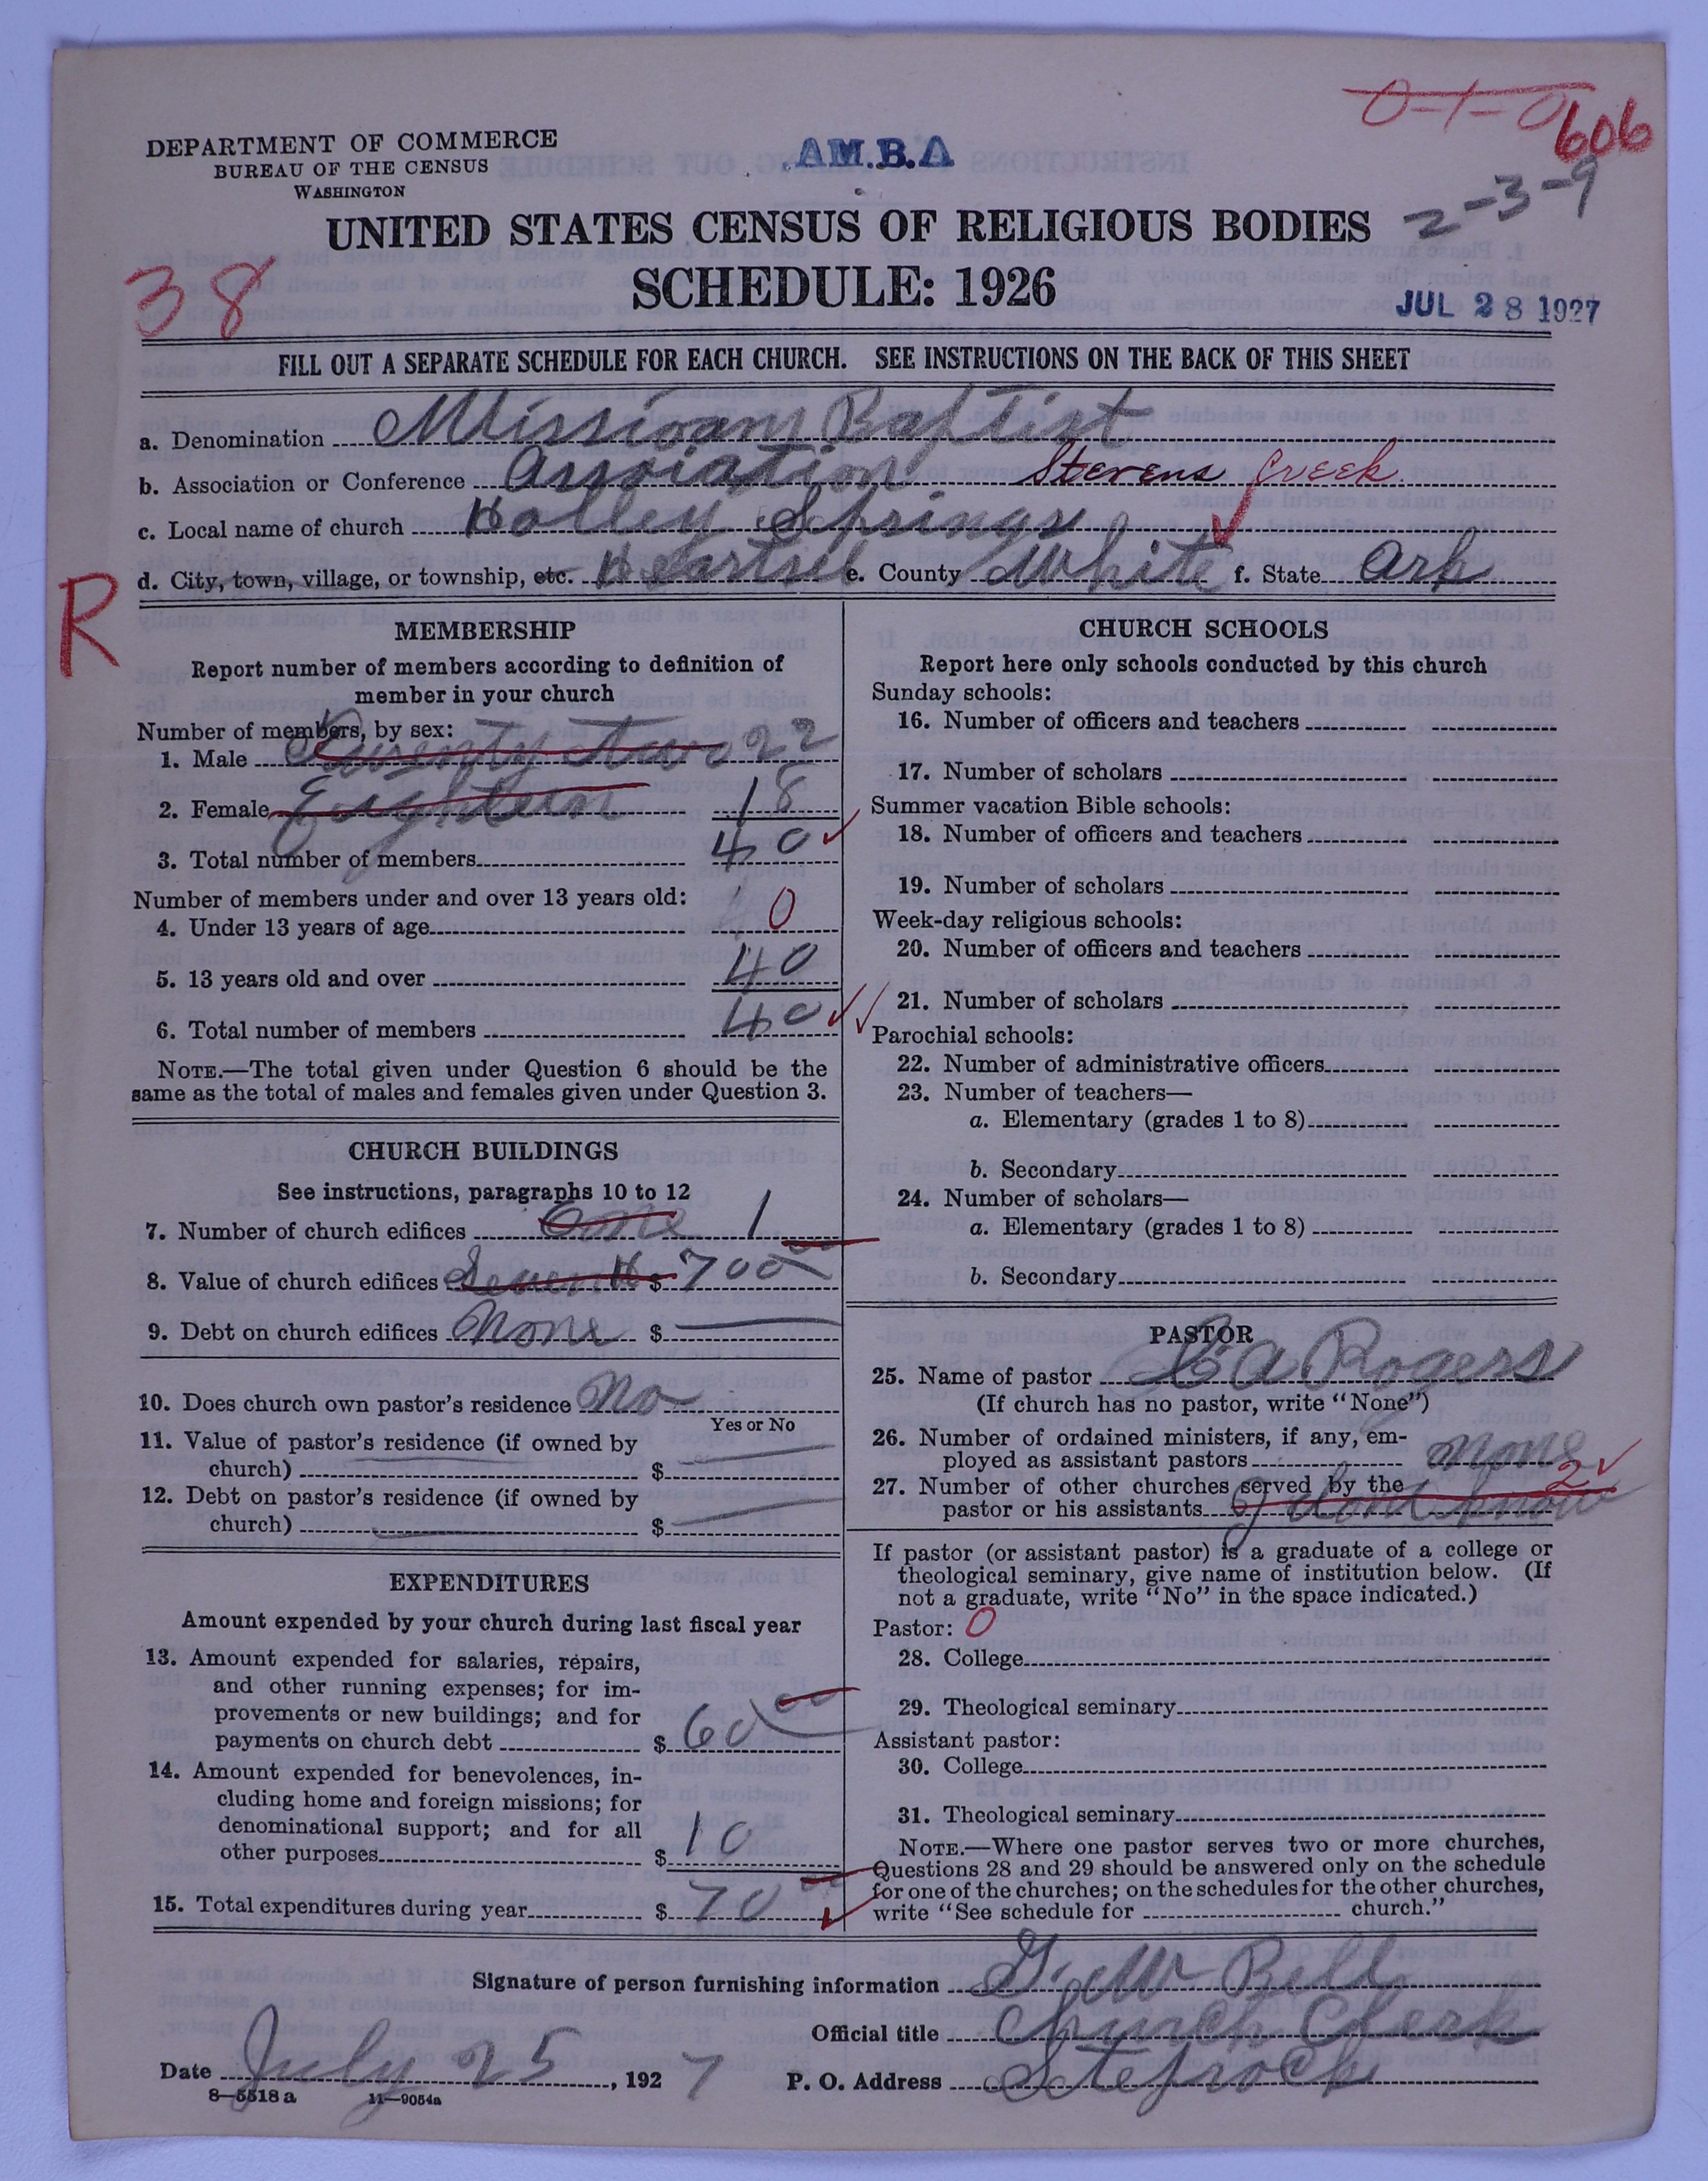 0-1-0
606
DEPARTMENT OF COMMERCE
BUREAU OF THE CENSUS
WASHINGTON
AM.B.A
2-3-9
UNITED STATES CENSUS OF RELIGIOUS BODIES
SCHEDULE: 1926
38
JUL 28 1927
FILL OUT A SEPARATE SCHEDULE FOR EACH CHURCH. SEE INSTRUCTIONS ON THE BACK OF THIS SHEET
a. Denomination Missionary Baptist
b. Association or Conference Association Stevens Creek
c. Local name of church Holley Springs
d. City, town, village, or township, etc. e. County White f. State Ark
R
MEMBERSHIP
Report number of members according to definition of
member in your church
Number of members, by sex:
1. Male Twenty two 22
2. Female Eighteen 18
3. Total number of members 40
Number of members under and over 13 years old:
4. Under 13 years of age 0
5. 13 years old and over 40
6. Total number of members 40
NOTE.—The total given under Question 6 should be the
same as the total of males and females given under Question 3.
CHURCH BUILDINGS
See instructions, paragraphs 10 to 12
7. Number of church edifices One 1
8. Value of church edifices Seven H $ 700 00
9. Debt on church edifices None $
10. Does church own pastor's residence No
Yes or No
11. Value of pastor's residence (if owned by
church) $
12. Debt on pastor's residence (if owned by
church) $
EXPENDITURES
Amount expended by your church during last fiscal year
13. Amount expended for salaries, repairs,
and other running expenses; for im-
provements or new buildings; and for
payments on church debt $ 60 00
14. Amount expended for benevolences, in-
cluding home and foreign missions; for
denominational support; and for all
other purposes $ 10
15. Total expenditures during year $ 70 00
CHURCH SCHOOLS
Report here only schools conducted by this church
Sunday schools:
16. Number of officers and teachers
17. Number of scholars
Summer vacation Bible schools:
18. Number of officers and teachers
19. Number of scholars
Week-day religious schools:
20. Number of officers and teachers
21. Number of scholars
Parochial schools:
22. Number of administrative officers
23. Number of teachers—
a. Elementary (grades 1 to 8)
b. Secondary
24. Number of scholars—
a. Elementary (grades 1 to 8)
b. Secondary
PASTOR
25. Name of pastor C A Rogers
(If church has no pastor, write "None")
26. Number of ordained ministers, if any, em-
ployed as assistant pastors None
27. Number of other churches served by the 2
pastor or his assistants I dont know
If pastor (or assistant pastor) is a graduate of a college or
theological seminary, give name of institution below. (If
not a graduate, write "No" in the space indicated.)
Pastor: 0
28. College
29. Theological seminary
Assistant pastor:
30. College
31. Theological seminary
NOTE.—Where one pastor serves two or more churches,
Questions 28 and 29 should be answered only on the schedule
for one of the churches; on the schedules for the other churches,
write "See schedule for church."
Signature of person furnishing information G. W Bell
Official title Church Clerk
Date July 25, 1927 P. O. Address Steprock
8—5518 a 11—9054a